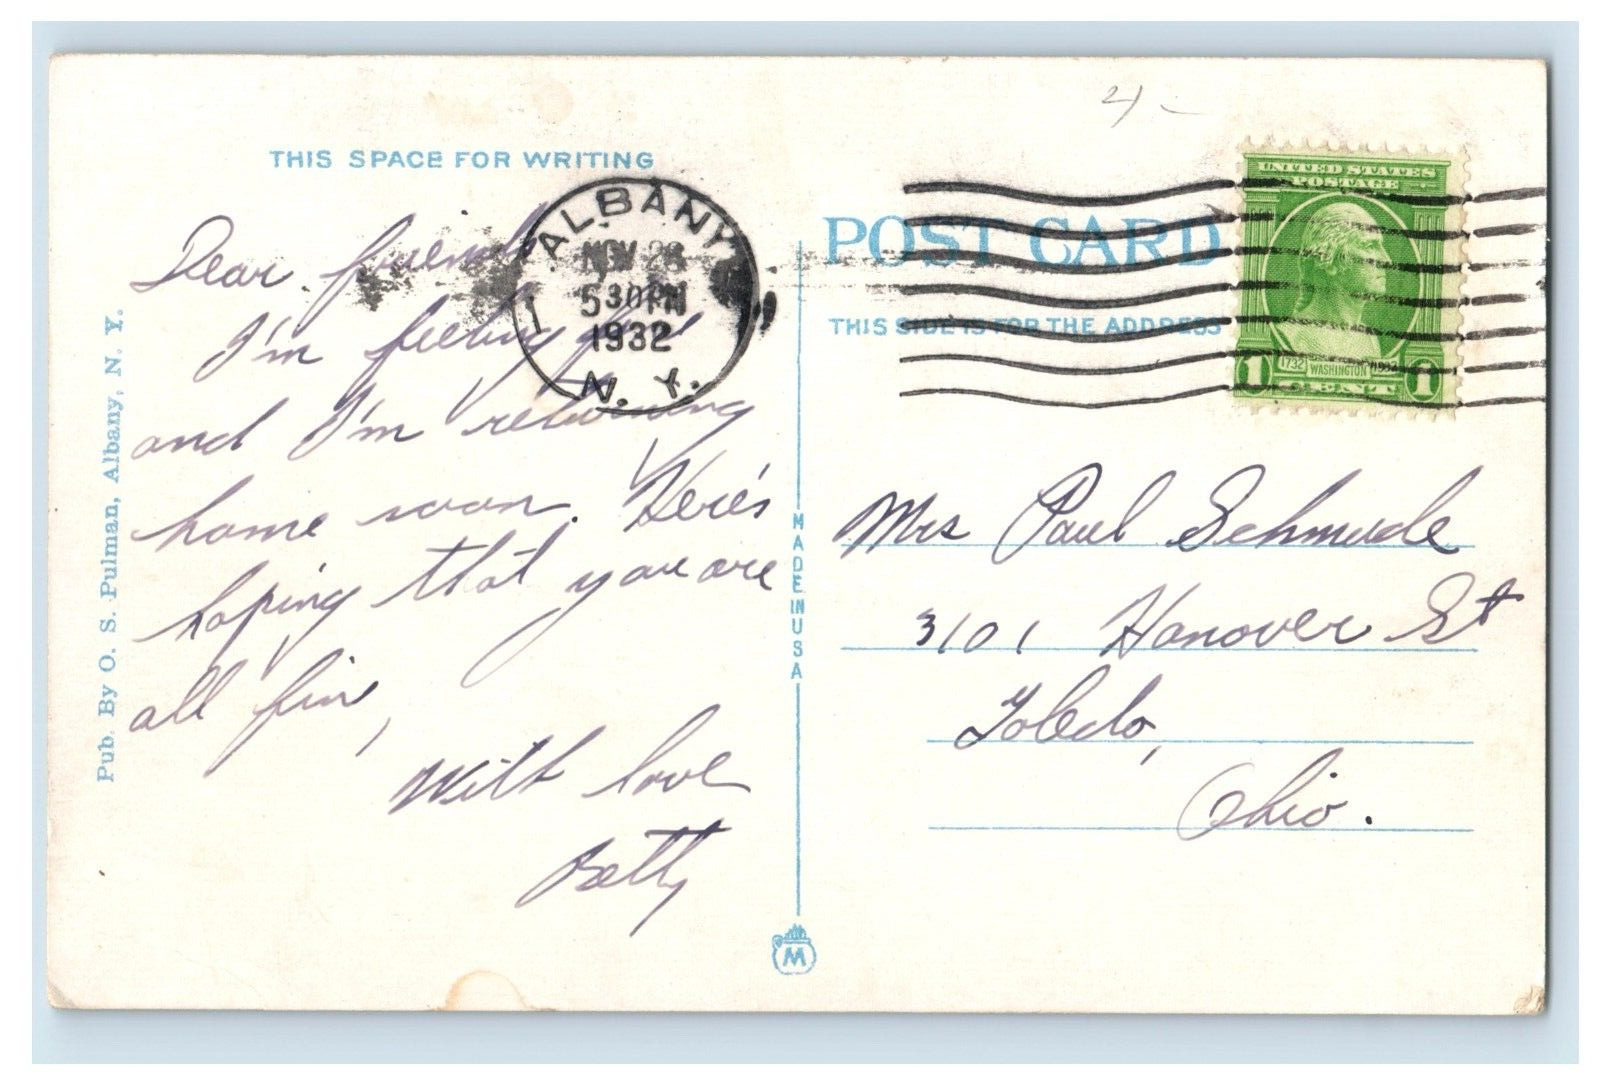 THIS SPACE FOR WRITING
Dear friend
I'm feeling
and I'm returning
home soon. Here's
hoping that you are
all fine,
With love
Betty
Pub. By O. S. Pulman, Albany, N. Y.
ALBANY
NOV 28
530PM
1932
N. Y.
MADE IN USA
M
POST CARD
THIS SIDE IS FOR THE ADDRESS
UNITED STATES
POSTAGE
1732 WASHINGTON 1932
1 CENT 1
Mrs Paul Schmude
3101 Hanover St
Toledo,
Ohio.